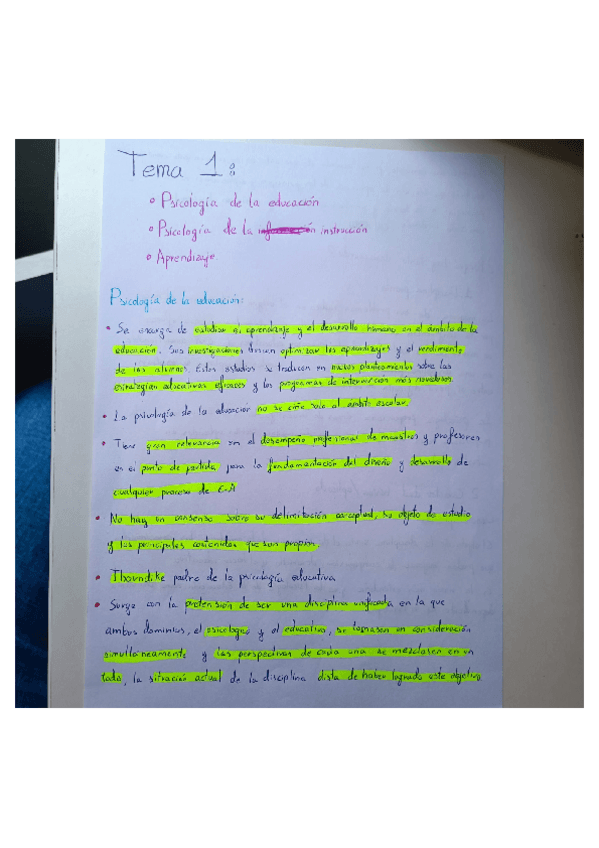 Tema 1:
• Psicología de la educación
• Psicología de la instrucción
• Aprendizaje
Psicología de la educación:
• Se encarga de estudiar el aprendizaje y el desarrollo humano en el ámbito de la
educación. Sus investigaciones buscan optimizar los aprendizajes y el rendimiento
de los alumnos. Estos estudios se traducen en nuevos planteamientos sobre las
estrategias educativas eficaces y los programas de intervención más novedosos.
• La psicología de la educación no se ciñe solo al ámbito escolar.
• Tiene gran relevancia en el desempeño profesional de maestros y profesores
en el punto de partida para la fundamentación del diseño y desarrollo de
cualquier proceso de E-A
• No hay un consenso sobre su delimitación conceptual, su objeto de estudio
y los principales contenidos que son propios.
• Thorndike padre de la psicología educativa
• Surge con la pretensión de ser una disciplina unificada en la que
ambos dominios, el psicológico y el educativo, se tomasen en consideración
simultáneamente y las perspectivas de cada una se mezclasen en un
todo, la situación actual de la disciplina dista de haber logrado este objetivo